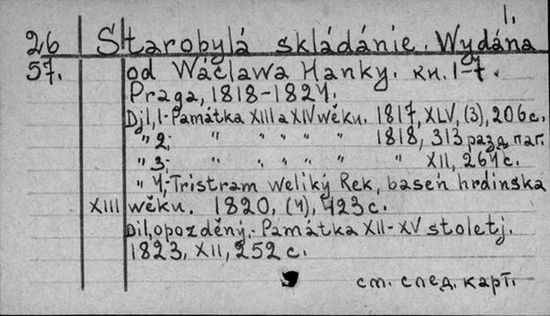 1.
26 Starobylá skládánie. Wydána
57. od Wáclawa Hanky. кн. 1-7.
Praga, 1818-1824.
Djl, 1- Památka XIII a XIV wěku. 1817, XLV, (3), 206 с.
" 2; " " " " " 1818, 313 разд. паг.
" 3; " " " " " " XII, 264 с.
" 4;- Tristram weliký Rek, baseň hrdinska
XIII wěku. 1820, (4), 423 с.
Djl, opozděný,- Památka XII-XV stoletj.
1823, XII, 252 с.
см. след. карт.